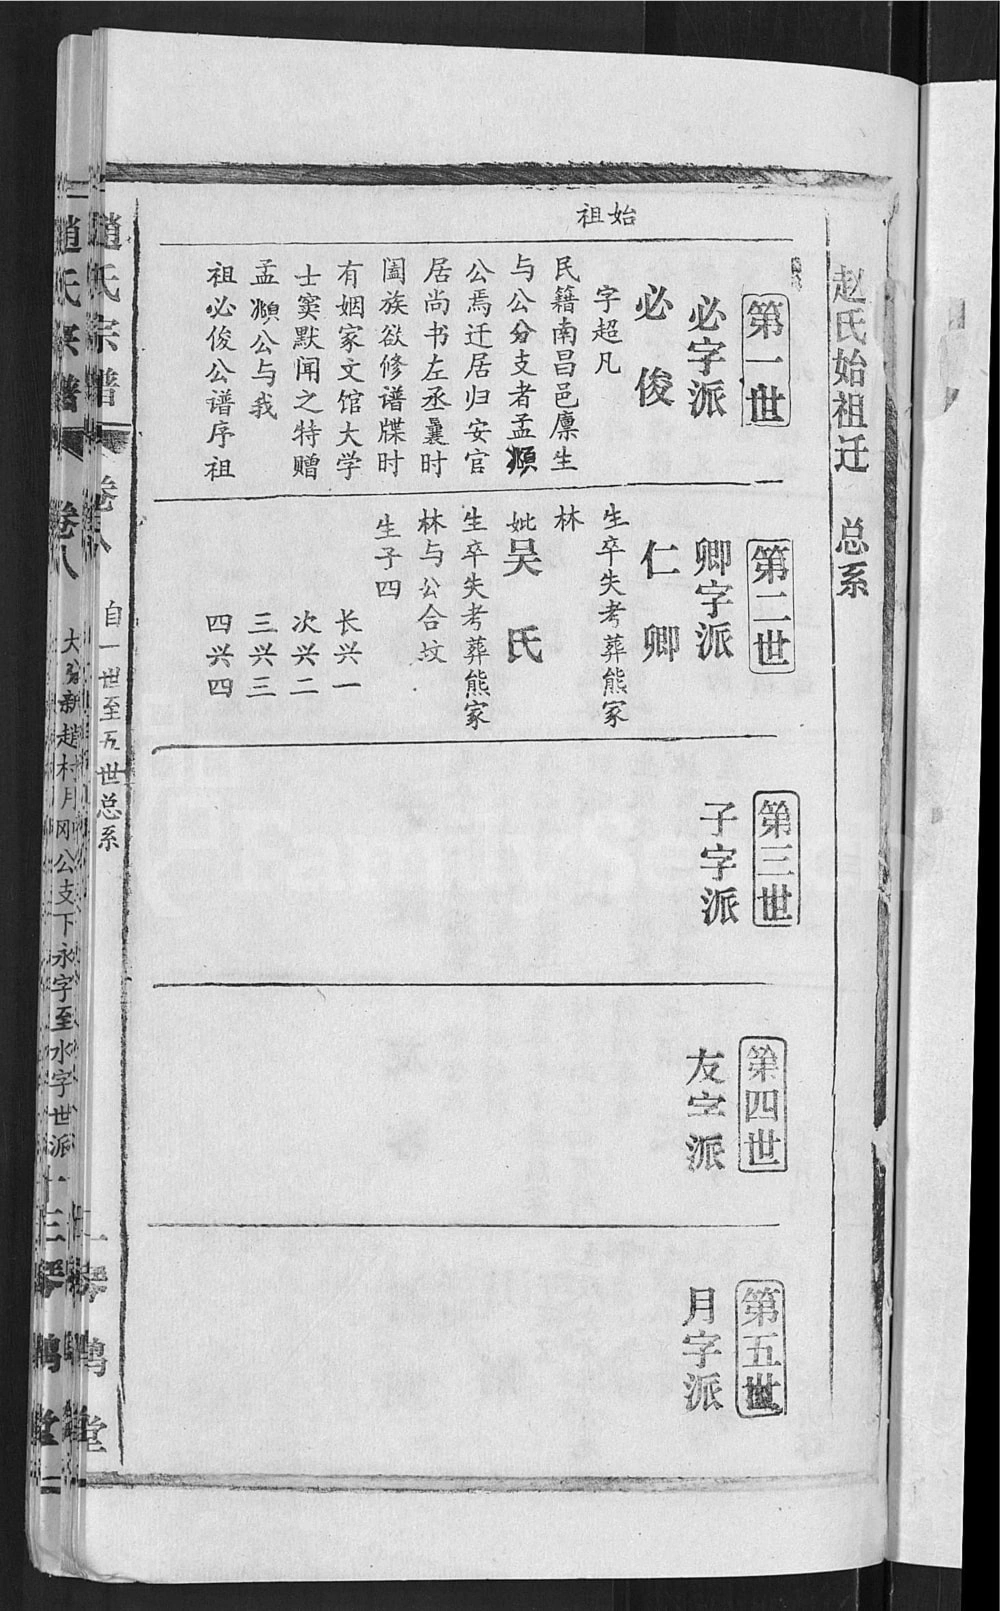 赵氏始祖迁　总系
始祖
第一世
必字派
必俊
字超凡
民籍南昌邑廪生
与公分支者孟頫
公焉迁居归安官
居尚书左丞曩时
阖族欲修谱牒时
有姻家文馆大学
士窦默闻之特赠
孟頫公与我
祖必俊公谱序祖
第二世
卿字派
仁卿
生卒失考葬熊家
林
妣吴氏
生卒失考葬熊家
林与公合坟
生子四
长兴一
次兴二
三兴三
四兴四
第三世
子字派
第四世
友字派
第五世
月字派
趙氏宗谱
卷八
自一世至五世总系
一琴鹤堂
趙氏宗譜
卷八
大分新趙村月冈公支下永字至水字世派
三琴鹤堂